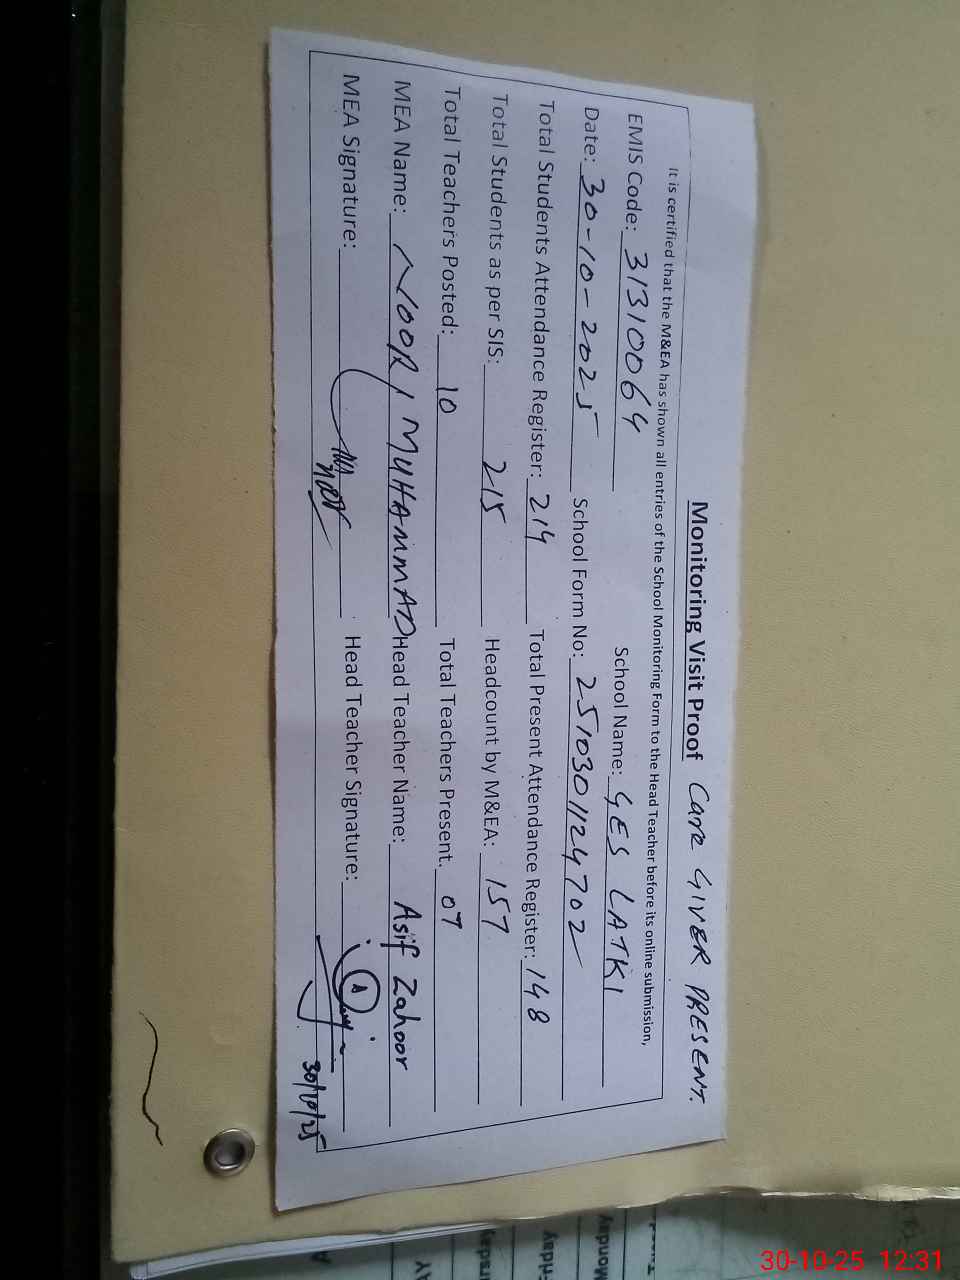 Monitoring Visit Proof Care GIVER PRESENT.
It is certified that the M&EA has shown all entries of the School Monitoring Form to the Head Teacher before its online submission,
EMIS Code: 31310064 School Name: GES LATKI
Date: 30-10-2025 School Form No: 2510301124702
Total Students Attendance Register: 214 Total Present Attendance Register: 148
Total Students as per SIS: 215 Headcount by M&EA: 157
Total Teachers Posted: 10 Total Teachers Present. 07
MEA Name: NOOR MUHAMMAD Head Teacher Name: Asif Zahoor
MEA Signature: Head Teacher Signature:
30/10/25
30-10-25 12:31